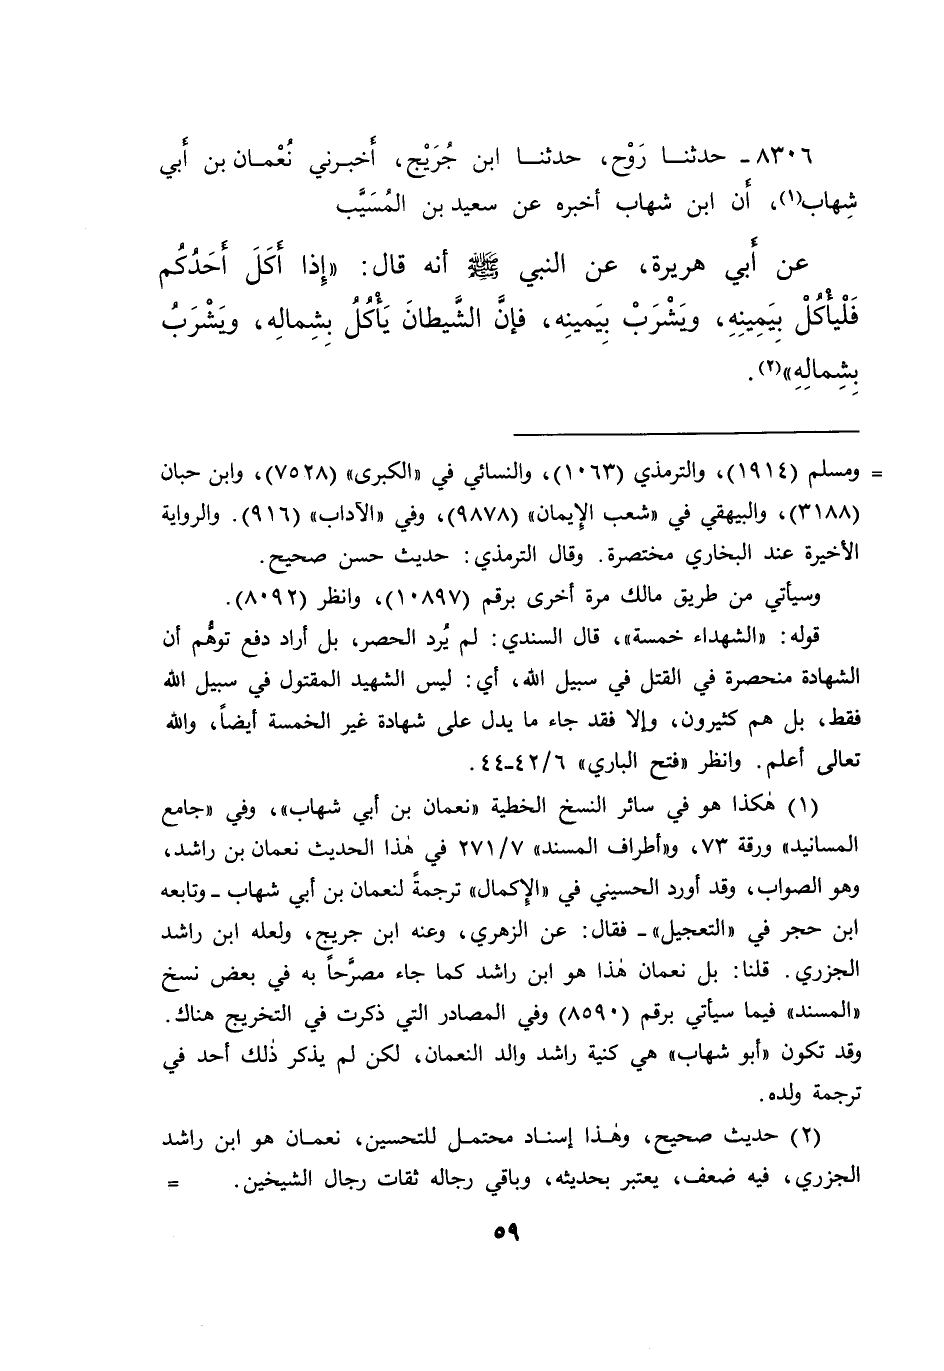 ٨٣٠٦ - حدثنـا رَوْح، حدثنـا ابن جُرَيْج، أَخبـرني نُعْمـان بن أَبي
شِهاب(١)، أَن ابن شهاب أخبره عن سعيد بن المُسَيَّب
عن أَبي هريرة، عن النبي ﷺ أنه قال: «إِذا أَكَلَ أَحَدُكُم
فَلْيأْكُلْ بِيَمِينِهِ، ويَشْرَبْ بِيَمينِه، فإنَّ الشَّيطانَ يَأْكُلُ بِشِمالِه، ويَشْرَبُ
بِشِمالِهِ»(٢).
= ومسلم (١٩١٤)، والترمذي (١٠٦٣)، والنسائي في «الكبرى» (٧٥٢٨)، وابن حبان
(٣١٨٨)، والبيهقي في «شعب الإيمان» (٩٨٧٨)، وفي «الآداب» (٩١٦). والرواية
الأخيرة عند البخاري مختصرة. وقال الترمذي: حديث حسن صحيح.
وسيأتي من طريق مالك مرة أخرى برقم (١٠٨٩٧)، وانظر (٨٠٩٢).
قوله: «الشهداء خمسة»، قال السندي: لم يُرد الحصر، بل أراد دفع توهُّم أن
الشهادة منحصرة في القتل في سبيل الله، أي: ليس الشهيد المقتول في سبيل الله
فقط، بل هم كثيرون، وإلا فقد جاء ما يدل على شهادة غير الخمسة أيضاً، والله
تعالى أعلم. وانظر «فتح الباري» ٤٢/٦-٤٤.
(١) هٰكذا هو في سائر النسخ الخطية «نعمان بن أبي شهاب»، وفي «جامع
المسانيد» ورقة ٧٣، و«أطراف المسند» ٢٧١/٧ في هٰذا الحديث نعمان بن راشد،
وهو الصواب، وقد أورد الحسيني في «الإكمال» ترجمةً لنعمان بن أبي شهاب - وتابعه
ابن حجر في «التعجيل» - فقال: عن الزهري، وعنه ابن جريج، ولعله ابن راشد
الجزري. قلنا: بل نعمان هٰذا هو ابن راشد كما جاء مصرَّحاً به في بعض نسخ
«المسند» فيما سيأتي برقم (٨٥٩٠) وفي المصادر التي ذكرت في التخريج هناك.
وقد تكون «أبو شهاب» هي كنية راشد والد النعمان، لكن لم يذكر ذٰلك أحد في
ترجمة ولده.
(٢) حديث صحيح، وهٰذا إسناد محتمل للتحسين، نعمـان هو ابن راشد
الجزري، فيه ضعف، يعتبر بحديثه، وباقي رجاله ثقات رجال الشيخين. =
٥٩